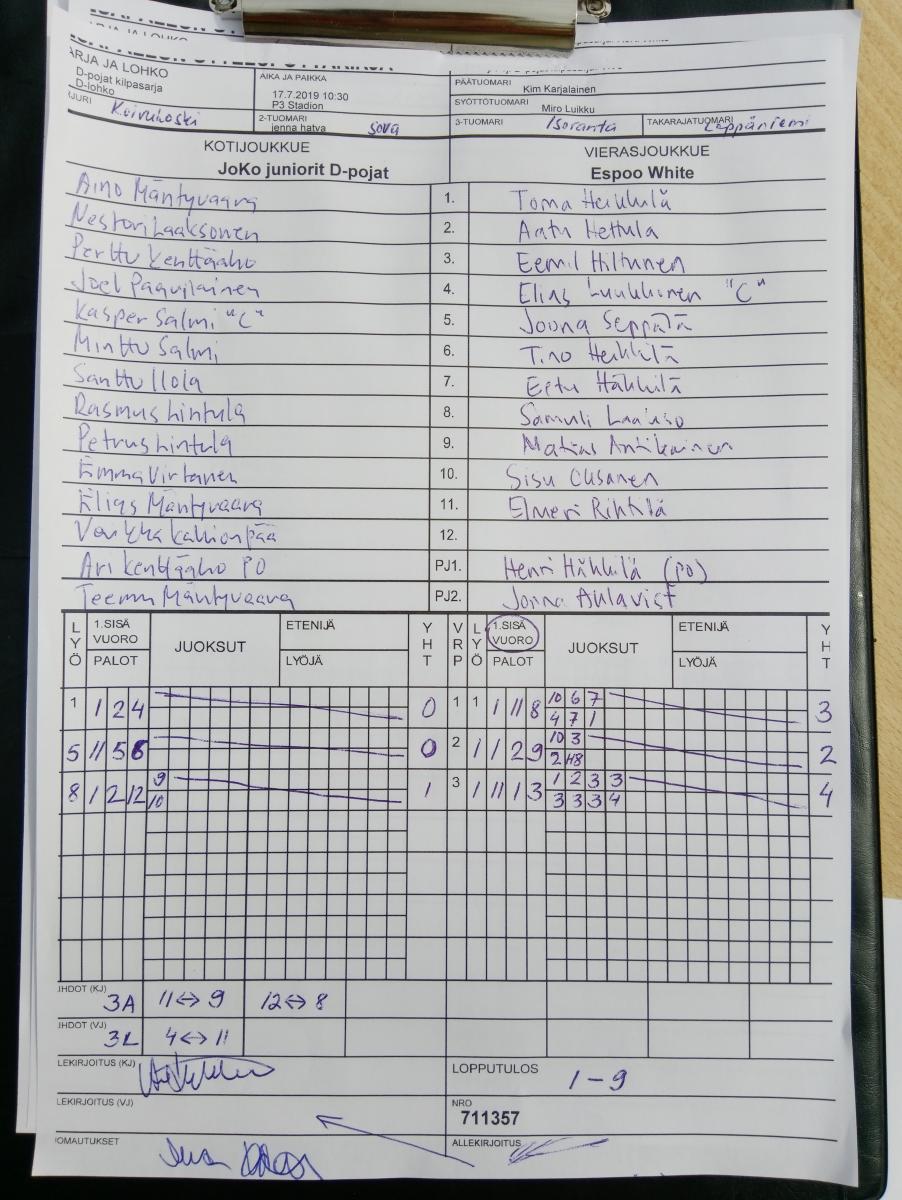 ARJA JA LOHKO
D-pojat kilpasarja
D-lohko
AIKA JA PAIKKA
17.7.2019 10:30
P3 Stadion
PÄÄTUOMARI
Kim Karjalainen
SYÖTTÖTUOMARI
Miro Luikku
Koivukoski
2-TUOMARI
jenna hatva
Sova
3-TUOMARI
Isoranta
TAKARAJATUOMARI
Leppäniemi
KOTIJOUKKUE
JoKo juniorit D-pojat
VIERASJOUKKUE
Espoo White
Aino Mäntyvaara 1. Toma Heikkilä
Nestori Laaksonen 2. Aatu Hettula
Perttu Kenttäaho 3. Eemil Hiltunen
Joel Paquilainen 4. Elias Luukkonen "C"
Kasper Salmi "C" 5. Joona Seppälä
Minttu Salmi 6. Tino Heikkilä
Santtu Ilola 7. Eetu Häkkilä
Rasmus Lintula 8. Samuli
Petrus Lintula 9. Matias Antikainen
Emma Virtanen 10. Sisu Ousanen
Elias Mäntyvaara 11. Elmeri Rihtilä
Venkka Kallionpää 12.
Ari Kenttäaho PO PJ1. Henri Häkkilä (PO)
Teemu Mäntyvaara PJ2. Jonna Ahlqvist
LYÖ 1.SISÄ VUORO PALOT JUOKSUT ETENIJÄ LYÖJÄ YHT VRP LYÖ 1.SISÄ VUORO PALOT JUOKSUT ETENIJÄ LYÖJÄ YHT
1 1 2 4 0 1 1 1 11 8 10 6 7 3
4 7 1
5 11 5 6 0 2 1 1 2 9 10 3 2
2 8
8 1 2 12 9 1 3 1 11 1 3 1 2 3 3 4
10 3 3 3 4
IHDOT (KJ)
3A 11↔9 12↔8
IHDOT (VJ)
3L 4↔11
LEKIRJOITUS (KJ)
LOPPUTULOS
1-9
LEKIRJOITUS (VJ)
NRO
711357
OMAUTUKSET
ALLEKIRJOITUS